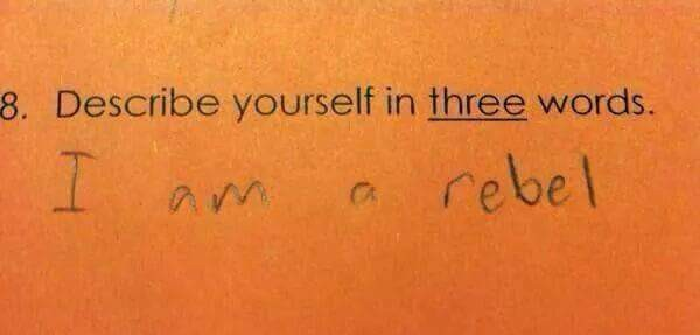 8. Describe yourself in three words.
I am a rebel